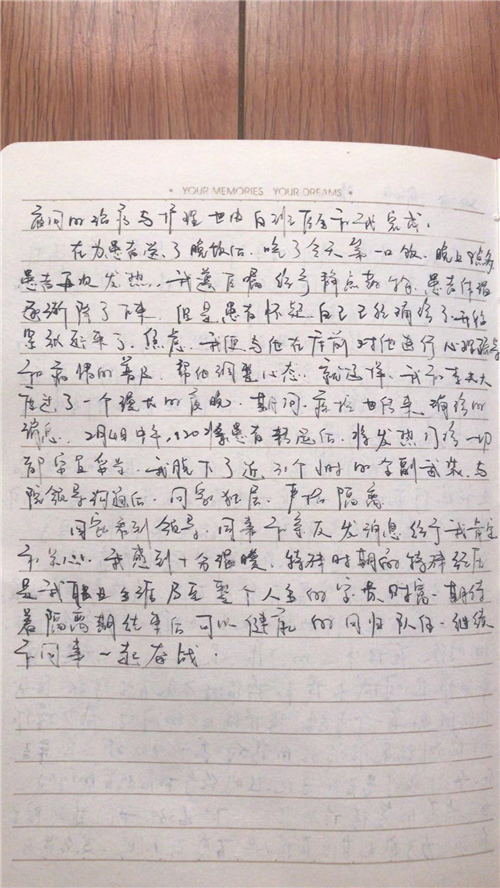 YOUR MEMORIES YOUR DREAMS
夜间的治疗与护理也由白班医生和我完成.
在为患者送了晚饭后.吃了今天第一口饭.晚上8点多
患者再次发热..我遵医嘱给予静点输液.患者体温
逐渐降了下来.但是患者怀疑自己已经确诊了.开始
紧张起来了.焦虑.我便与他在床前对他进行心理疏导
和病情的普及.帮他调整心态.就这样.我和李大夫
度过了一个漫长的夜晚.期间.疫情也传来确诊的
消息.2月4日中午.120将患者转运后.将发热门诊一切
都安置妥当.我脱下了近31个小时的全副武装.与
院领导沟通后.回家 严格隔离
回家看到领导.同事和亲友发消息给予我肯定
和关心.我感到十分温暖.特殊时期的特殊经历
是我职业生涯乃至整个人生的宝贵财富.期待
着隔离期结束后可以健康的回归队伍.继续
和同事一起奋战.